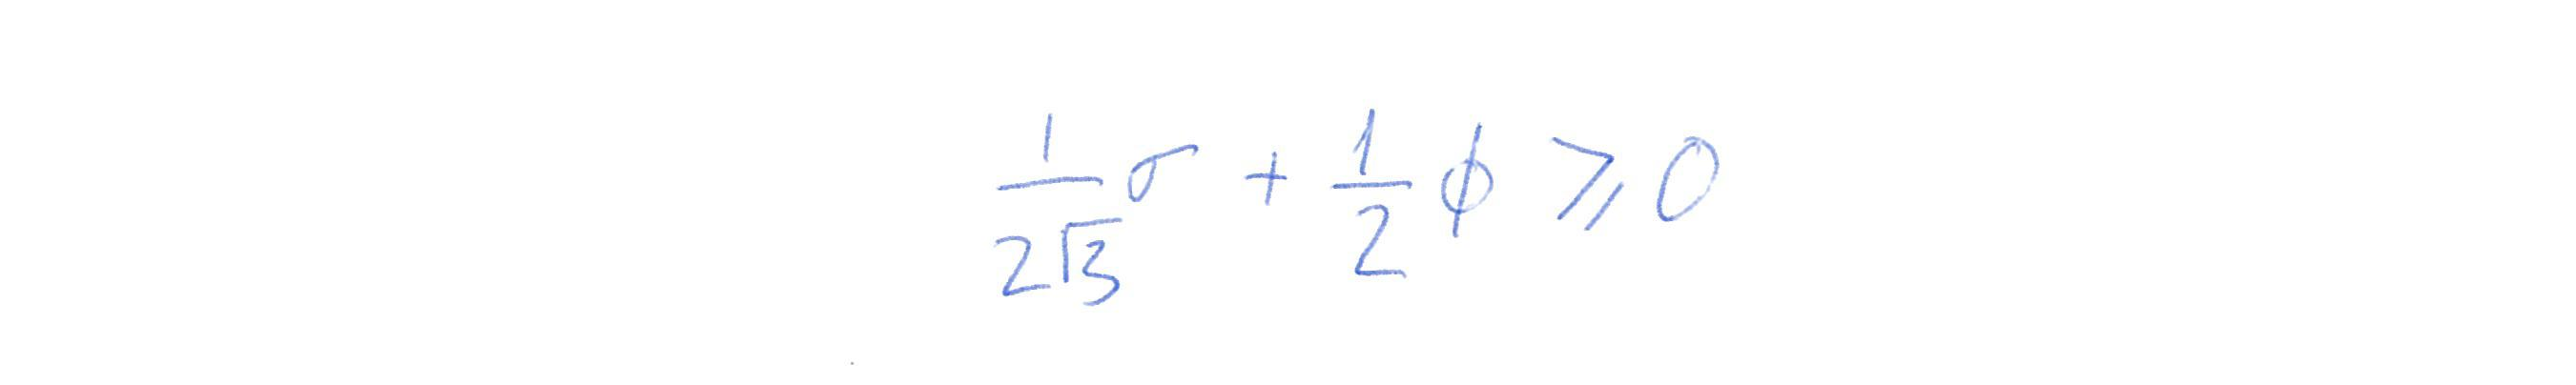 \frac{1}{2\sqrt{3}}\sigma + \frac{1}{2}\phi \geqslant 0